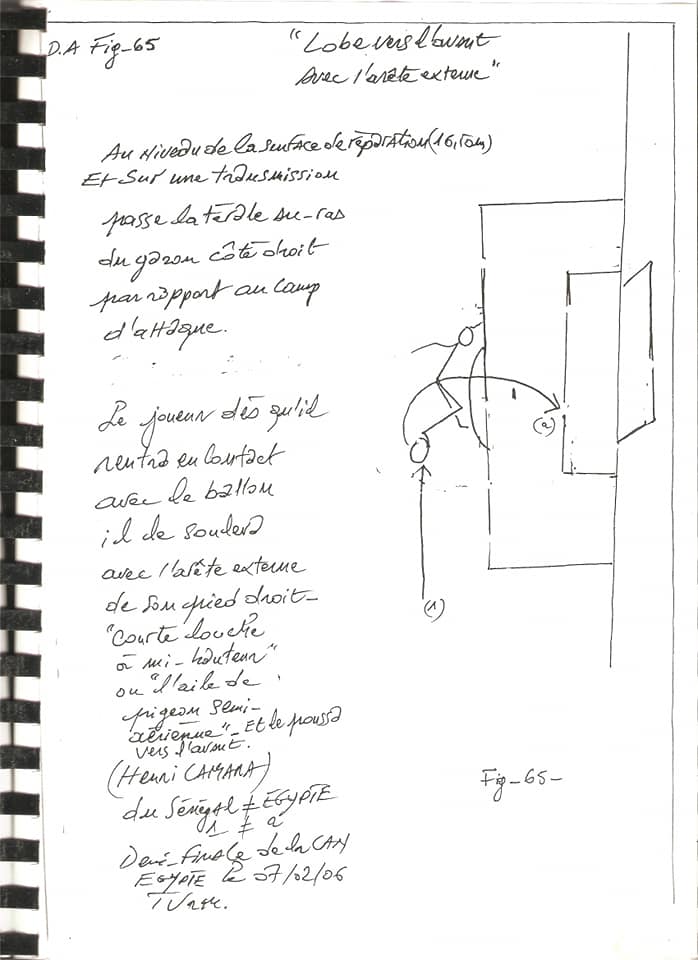 D.A Fig-65
"Lobe vers l'avant
Avec l'arête externe"
Au niveau de la surface de réparation (16,50m)
Et sur une transmission
passe latérale au-ras
du gazon côté droit
par rapport au camp
d'attaque.
Le joueur dès qu'il
rentra en contact
avec le ballon
il le souleva
avec l'arête externe
de son pied droit-
"Courte louche
à mi-hauteur"
ou "l'aile de
pigeon semi-
aérienne"- Et le poussa
vers l'avant.
(Henri CAMARA)
du Sénégal ≠ EGYPTE
1 ≠ 2
Demi-finale de la CAN
EGYPTE le 07/02/06
(2)
(1)
Fig-65-